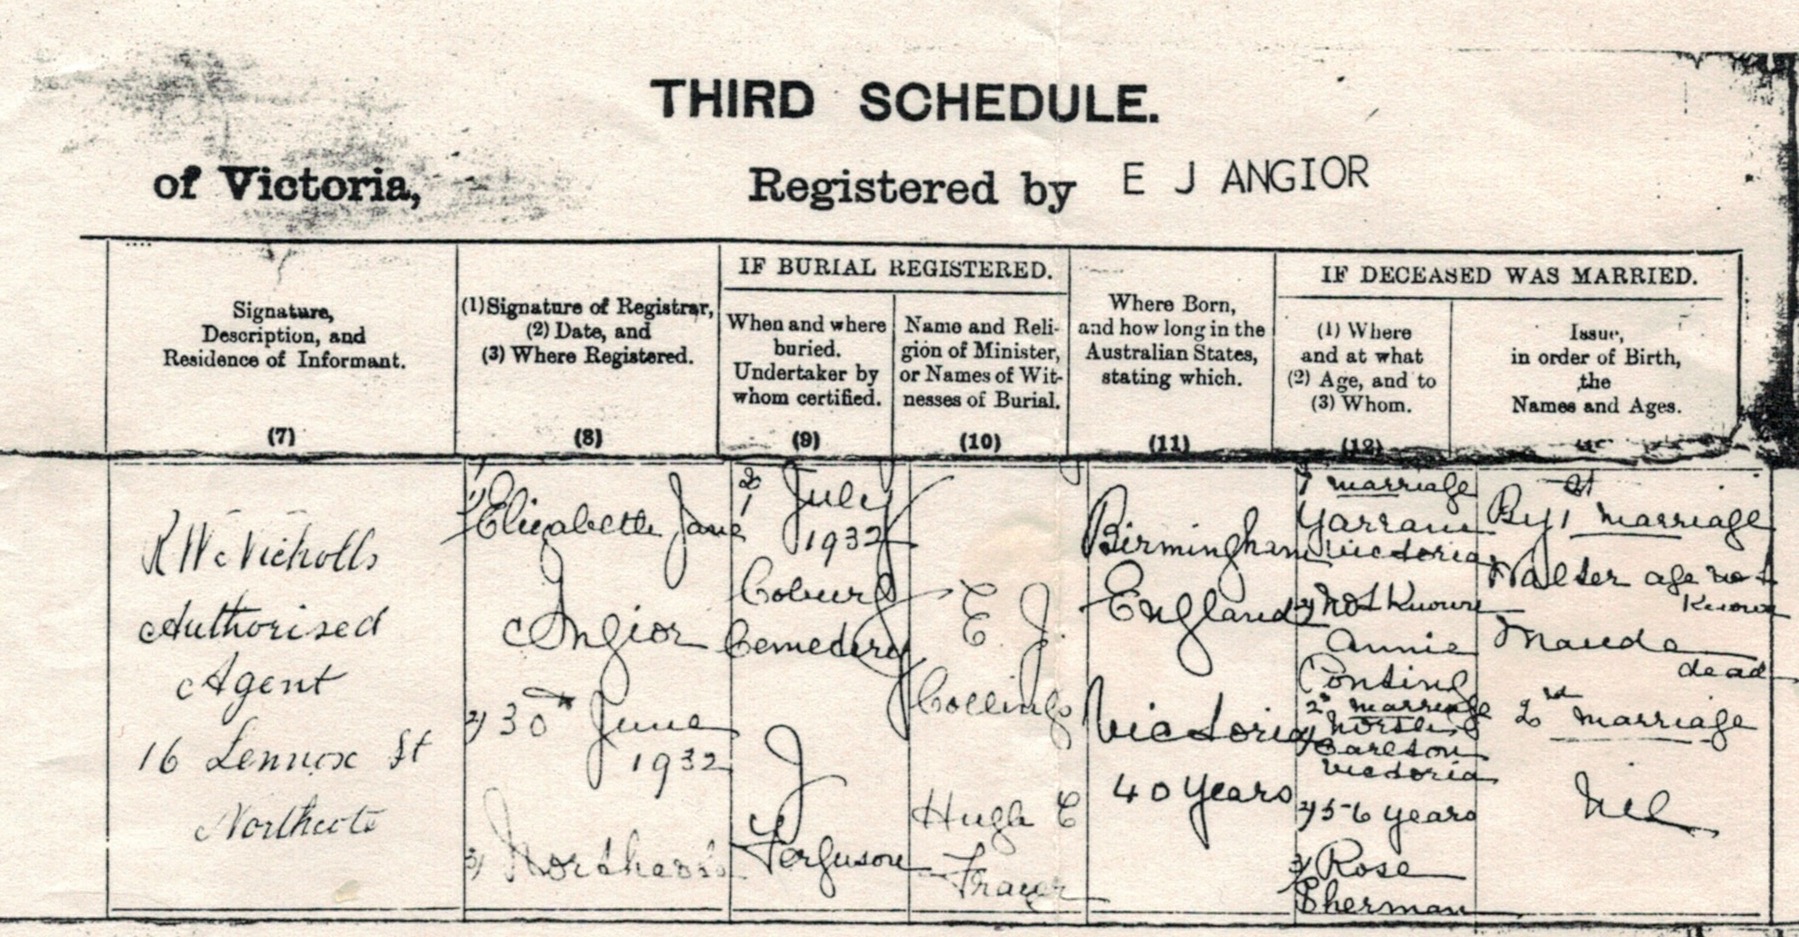 THIRD SCHEDULE.
of Victoria,
Registered by E J ANGIOR
Signature,
Description, and
Residence of Informant.
(7)
(1) Signature of Registrar,
(2) Date, and
(3) Where Registered.
(8)
IF BURIAL REGISTERED.
When and where
buried.
Undertaker by
whom certified.
(9)
Name and Reli-
gion of Minister,
or Names of Wit-
nesses of Burial.
(10)
Where Born,
and how long in the
Australian States,
stating which.
(11)
IF DECEASED WAS MARRIED.
(1) Where
and at what
(2) Age, and to
(3) Whom.
(12)
Issue,
in order of Birth,
the
Names and Ages.
Nicholls
Authorised
Agent
16 Lennox St
Northcote
1) Elizabeth Jane
Angior
2) 30th June
1932
3) Northcote
July
1932
Coburg
Cemetery
J
Ferguson
E J.
Collings
Hugh C
Fraser
Birmingham
England
Victoria
40 years
1st marriage
Yarram
Victoria
2) Not Known
Annie
Ponting
2nd marriage
Carlton
Victoria
2) 56 years
3) Rose
Sherman
By 1st marriage
Walter age not
Known
Maude
dead
2nd marriage
Nil